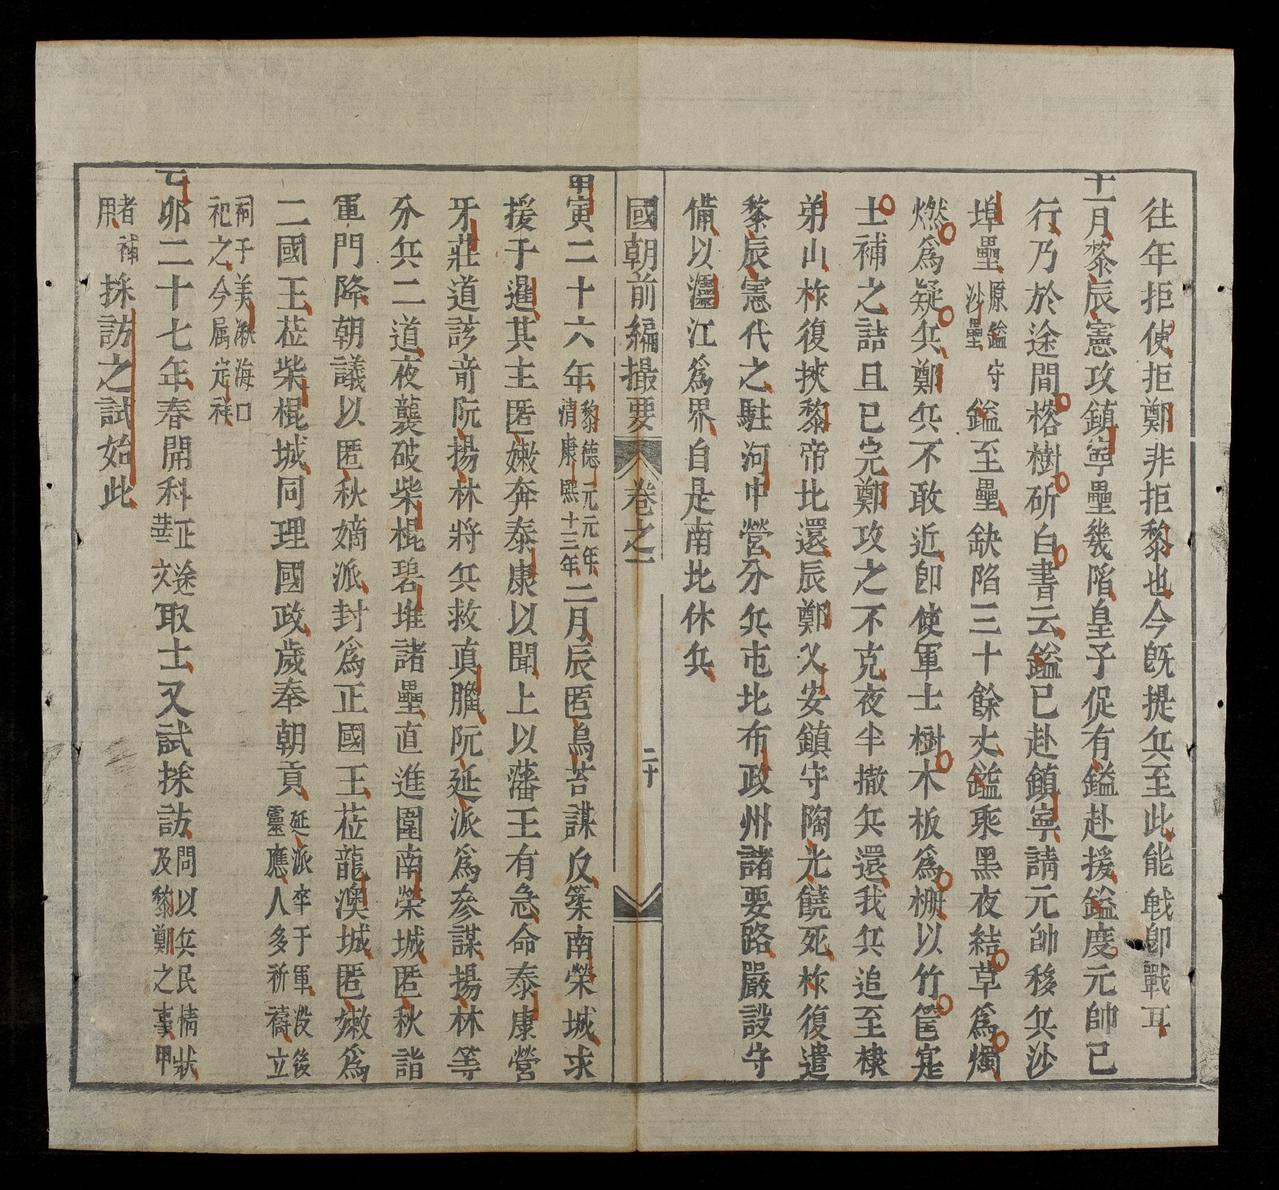 往年拒使拒鄭非拒黎也今旣提兵至此能戰卽戰耳
十一月黎辰憲攻鎮寧壘幾陷皇子促有鎰赴援鎰度元帥已
行乃於途間榕樹斫白書云鎰已赴鎮寧請元帥移兵沙
埠壘原鎰守沙壘鎰至壘缺陷三十餘丈鎰乘黑夜結草爲燭
燃爲疑兵鄭兵不敢近卽使軍士樹木板爲柵以竹筐寔
土補之詰旦已完鄭攻之不克夜半撤兵還我兵追至棣
弟山柞復挾黎帝北還辰鄭久安鎮守陶光饒死柞復遣
黎辰憲代之駐河中營分兵屯北布政州諸要路嚴設守
備以𤅷江爲界自是南北休兵
國朝前編撮要 卷之一 二十
甲寅二十六年黎德元元年清康熙十三年二月辰匿烏苔謀反築南榮城求
援于暹其主匿嫩奔泰康以聞上以藩王有急命泰康營
牙莊道該竒阮揚林將兵救眞臘阮延派爲參謀揚林等
分兵二道夜襲破柴棍碧堆諸壘直進圍南榮城匿秋詣
軍門降朝議以匿秋嫡派封爲正國王莅龍澳城匿嫩爲
二國王莅柴棍城同理國政歲奉朝貢延派卒于軍沒後靈應人多祈禱立
祠于美湫海口祀之今属定祥
乙卯二十七年春開科正途華文取士又試探訪問以兵民情狀及黎鄭之事甲
者補用探訪之試始此